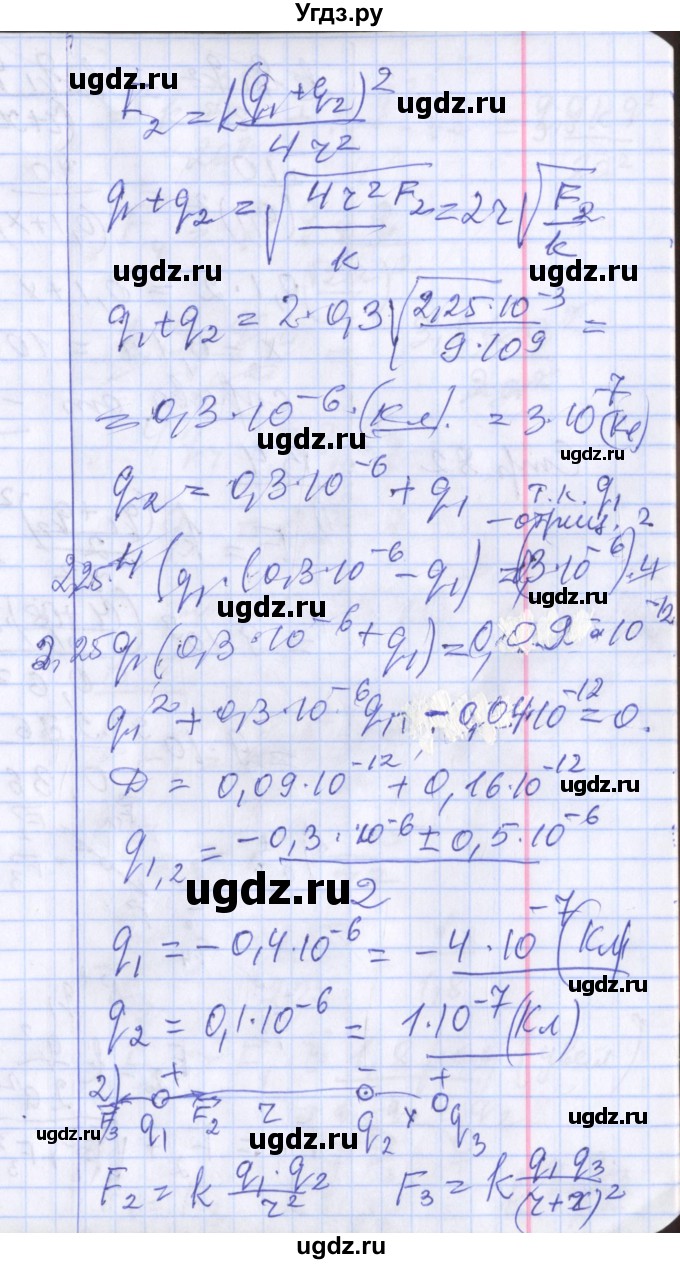 Угдз.ру
F₂ = k (q₁ + q₂)² / 4r²
ugdz.ru ugdz.ru
q₁ + q₂ = √(4r²F₂ / k) = 2r √(F₂ / k)
ugdz.ru ugdz.ru
q₁ + q₂ = 2 · 0,3 √(2,25 · 10⁻³ / 9 · 10⁹) =
= 0,3 · 10⁻⁶ · (Кл). = 3 · 10⁻⁷ (Кл)
ugdz.ru ugdz.ru
q₂ = 0,3 · 10⁻⁶ + q₁ т.к. q₁
– отриц.
2,25 · 4 (q₁ · (0,3 · 10⁻⁶ – q₁) = (3 · 10⁻⁶)² · 4
ugdz.ru ugdz.ru
2,25 q₁ (0,3 · 10⁻⁶ + q₁) = 0,09 · 10⁻¹²
q₁² + 0,3 · 10⁻⁶ q₁ – 0,04 · 10⁻¹² = 0.
D = 0,09 · 10⁻¹² + 0,16 · 10⁻¹²
ugdz.ru
q₁,₂ = – 0,3 · 10⁻⁶ ± 0,5 · 10⁻⁶ / 2
ugdz.ru ugdz.ru
q₁ = – 0,4 · 10⁻⁶ = – 4 · 10⁻⁷ (Кл)
ugdz.ru
q₂ = 0,1 · 10⁻⁶ = 1 · 10⁻⁷ (Кл)
2) + – +
F₃ q₁ F₂ r q₂ x q₃
ugdz.ru ugdz.ru ugdz.ru
F₂ = k q₁ · q₂ / r² F₃ = k q₁ q₃ / (r + x)²
ugdz.ru ugdz.ru
ugdz.ru